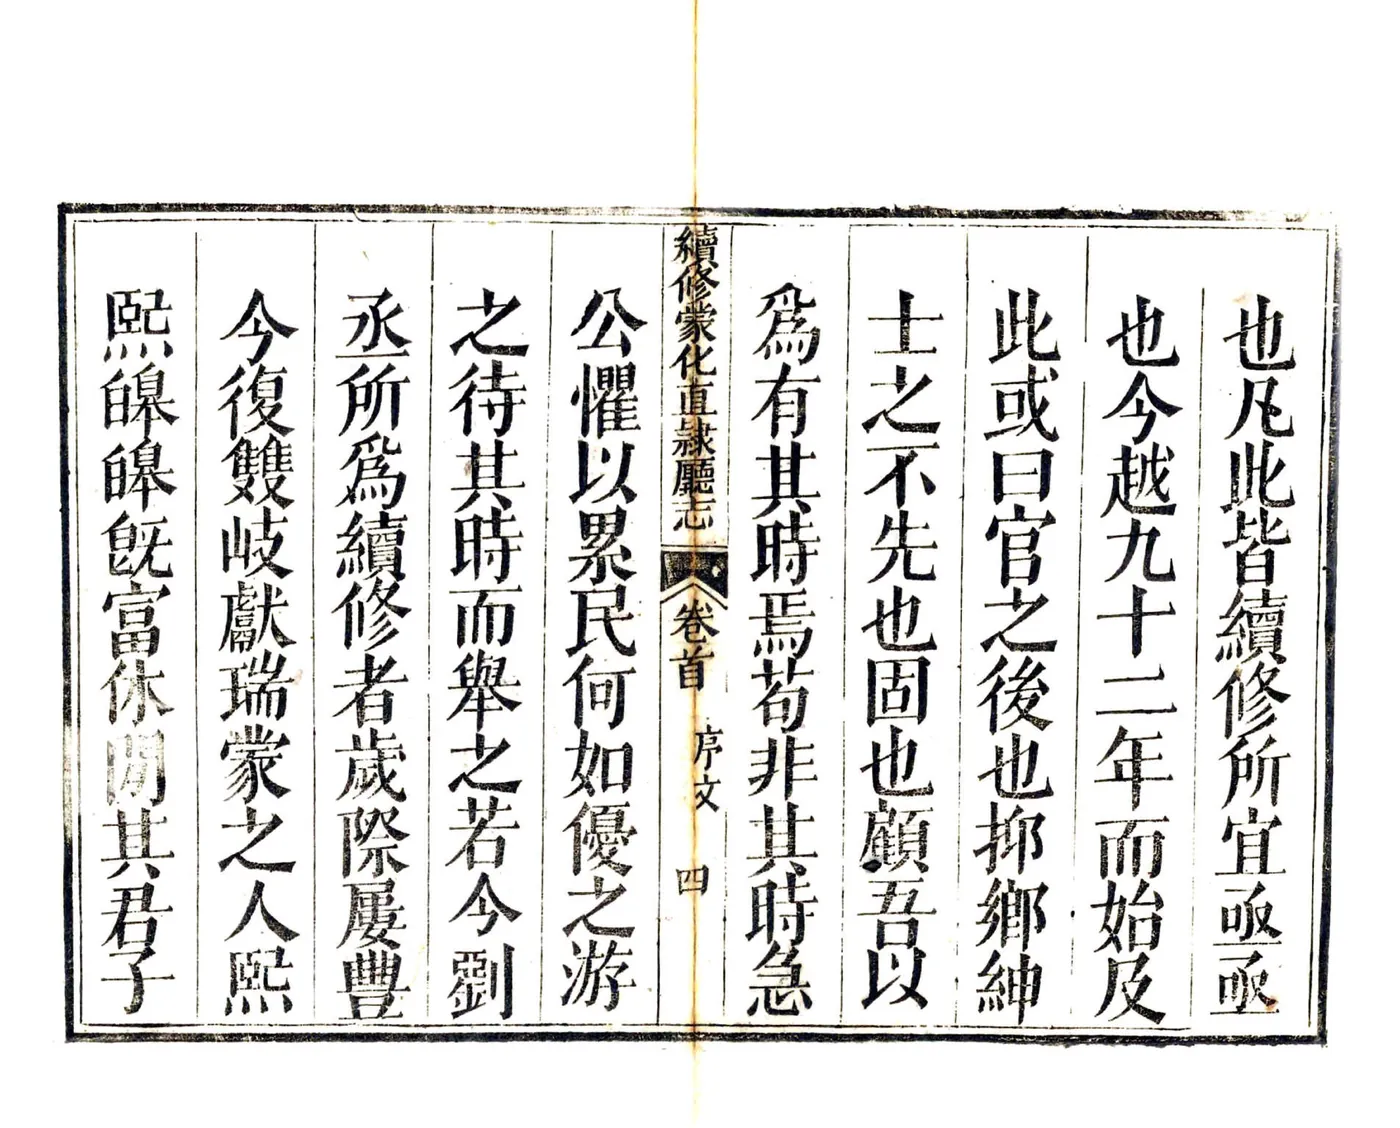 也凡此皆續修所宜亟亟
也今越九十二年而始及
此或曰官之後也抑鄉紳
士之不先也固也顧吾以
爲有其時焉苟非其時急
續修蒙化直隸廳志 卷首 序文 四
公懼以累民何如優之游
之待其時而舉之若今劉
丞所爲續修者歲際屢豐
今復雙岐獻瑞蒙之人熙
熙皞皞旣富休閒其君子